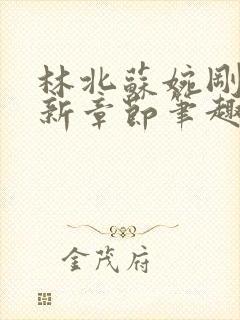 林北蘇婉剛
新章節筆趣
金茂府